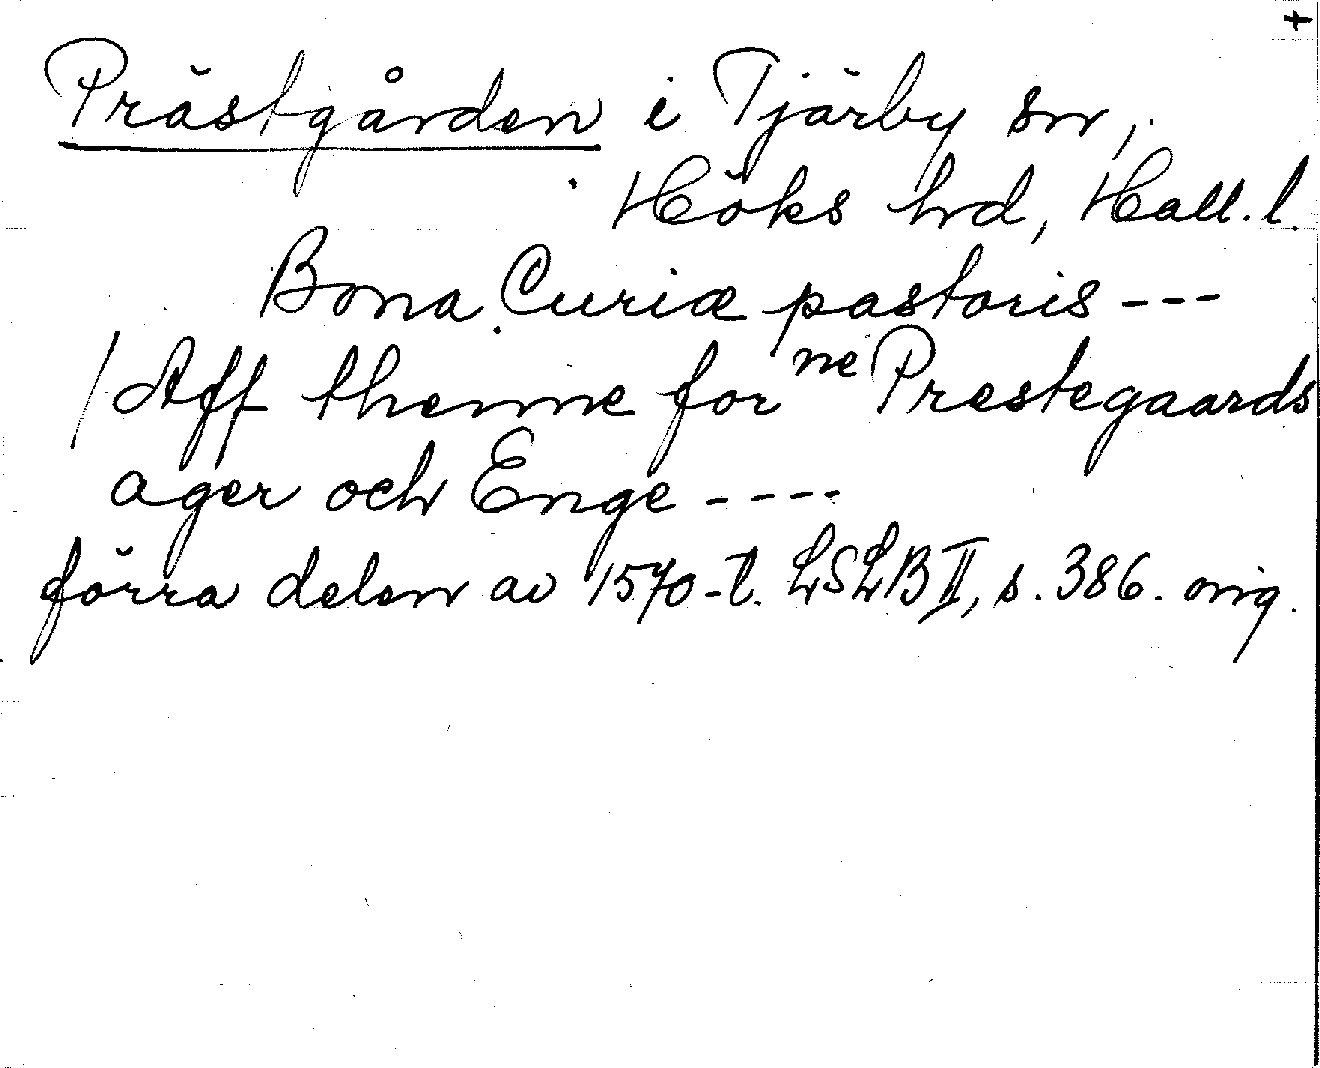 +
Prästgården i Tjärby sn,
Höks hrd, Hall. l.
Bona Curiæ pastoris ---
/ Aff thenne for ne Prestegaards
ager och Enge ----
förra delen av 1570-t. LSLB II, s. 386. orig.